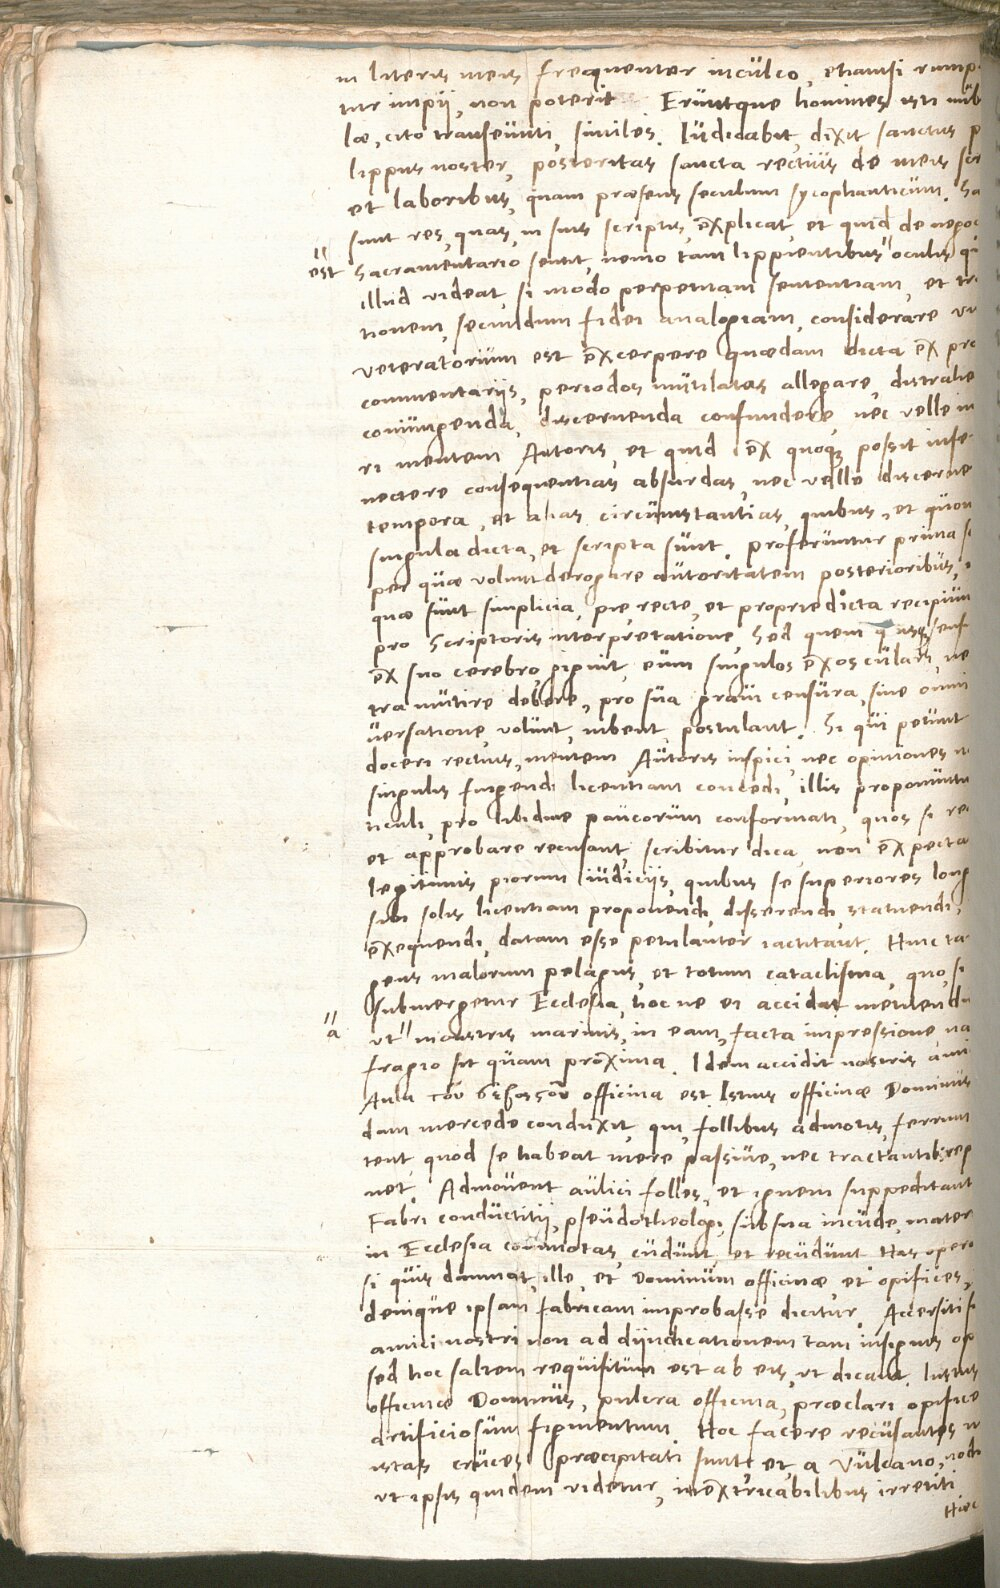 in literis meis frequenter inculco, etiamsi rump
tur impii, non poterit Eruntque homines isti nub
læ, cito transeunti, similes. Iudicabit, dixit sanctus p
lippus noster, posteritas sancta rectius de meis scr
et laboribus, quam præsens seculum sycophanticum. Sa
sunt res, quas, in suis scriptis, explicat, et quid de negoc
est Sacramentario sentit, nemo tam lippientibus oculis qu
illud videat, si modo perpetuam sententiam, et tr
tionem, secundum fidei analogiam, considerare v
veteratorium est excerpere quædam dicta ex pro
commentariis, periodos mutilatas allegare, distrahe
coniungenda, discernenda confundere, nec velle in
ri mentem Autoris, et quid ex quoque possit infe
nectere consequentias absurdas, nec velle discerne
tempora, et alias circumstantias, quibus, et quom
singula dicta, et scripta sunt. Proferuntur prima s
per quæ volunt derogare autoritatem posterioribus,
quæ sunt simplicia, pie recte, et proprie dicta recipiun
pro Scriptoris interpretatione, Sed quem quisque sens
ex suo cerebro gignit, eum singulos exosculari, ne
tra mutire debere, pro sua graui censura, sine omni
uersatione, volunt, iubent, postulant. Si qui petunt
doceri rectius, mentem Autoris inspici, nec opiniones n
singulis fingendi licentiam concedi, illis proponuntu
ticuli, pro libidine paucorum conformati, quos si re
et approbare recusant, scribitur dica, non expecta
legitimis piorum iudiciis, quibus se superiores long
sibi solis licentiam proponendi, disserendi statuendi,
exequendi, datam esse petulanter iactitant. Hinc ta
gens malorum pelagus, et totum cataclisma, quo, si
submergetur Ecclesia, hoc ne ei accidat metuendu
a ut monstris marinis, in eam, facta impressione na
fragio sit quam proxima. Idem accidit nostris ami
Aula officina est. Istius officinæ Dominus
dam mercede conduxit, qui, follibus admotis, ferrum
tent, quod se habeat mere passive, nec tractantib: rep
net. Admovent aulici folles, et ignem suppeditant
Fabri conductitii, pseudotheologi, sub sua incude, mater
in Ecclesia commotas, cudunt, et recudunt. Has opera
si quis damnat, ille, et Dominum officinæ et opifices,
denique ipsam fabricam improbasse dicitur. Accersiti s
amici nostri non ad diiudicationem tam insignis op
sed hoc saltem requisitum est ab eis, ut dicant. Iustus
officinæ Dominus, pulcra officina, præclari opifice
artificiosum figmentum. Hoc facere recusantes
istas cruces præcipitati sunt, et a Vulcano, nodi
ut ipsis quidem videtur, inextricabilibus irretiti
Hæc